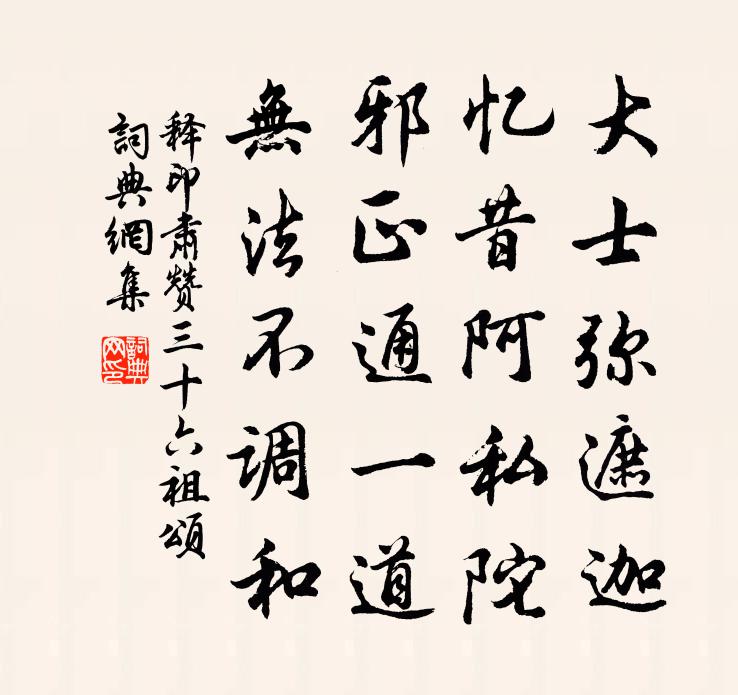 大士弥遮迦
忆昔阿私陀
邪正通一道
無法不调和
释印肃赞三十六祖頌
詞典網集
詞典网印